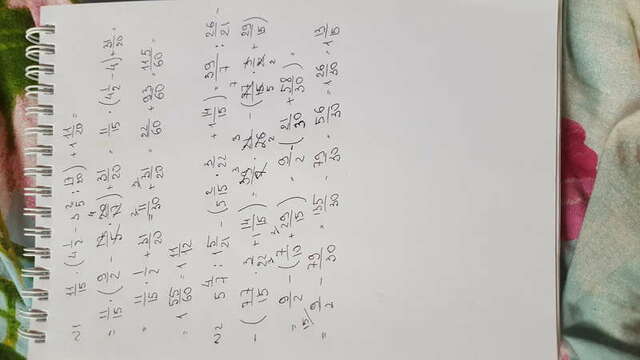 №1 11/15 · (4 1/2 − 3 2/5 : 17/20) + 1 11/20 =
= 11/15 · (9/2 − 17/5 · 20/17) + 31/20 = 11/15 · (4 1/2 − 4) + 31/20 =
= 11/15 · 1/2 + 31/20 = 11/30 + 31/20 = 22/60 + 93/60 = 115/60 =
= 1 55/60 = 1 11/12
№2 5 4/7 : 1 5/21 − (5 2/15 · 3/22 + 1 14/15) = 39/7 : 26/21 −
− (77/15 · 3/22 + 1 14/15) = 39/7 · 21/26 − (77/15 · 3/22 + 29/15)
= 9/2 − (7/10 + 29/15) = 9/2 − (21/30 + 58/30) =
= 9/2 − 79/30 = 135/30 − 79/30 = 56/30 = 1 26/30 = 1 13/15